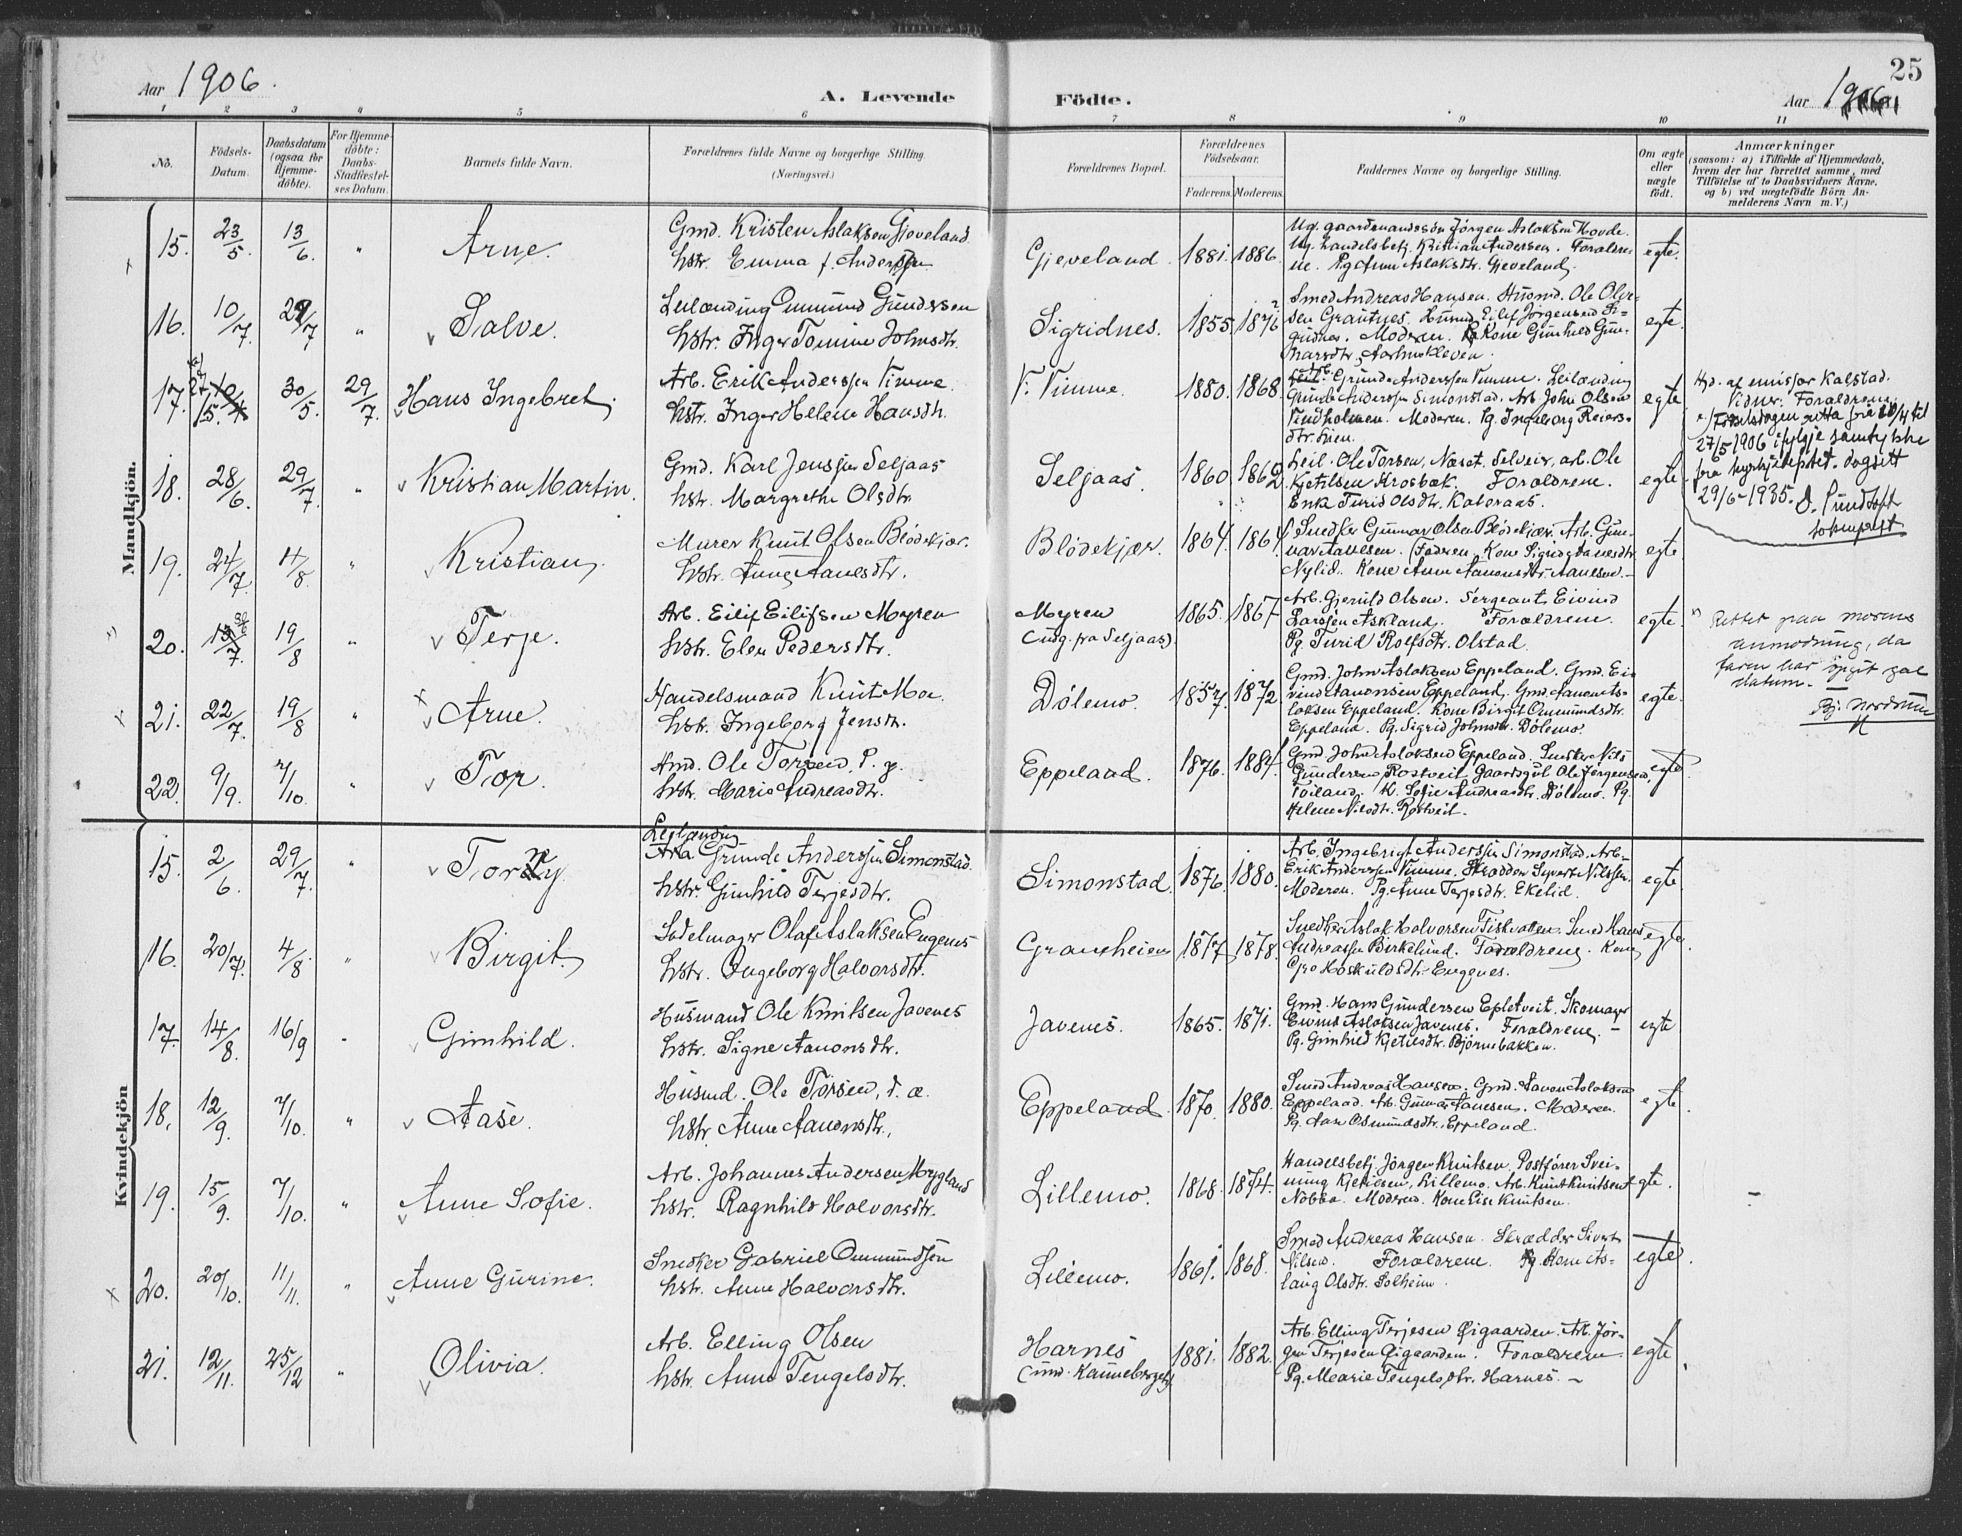 25
Aar 1906.
A. Levende Födte.
Aar 1906
1 2 3 4 5 6 7 8 9 10 11
No.
Födsels-
Datum.
Daabsdatum
(ogsaa for
Hjemme-
døbte).
For Hjemme-
döbte:
Daabs-
Stadfæstel-
ses Datum.
Barnets fulde Navn.
Forældrenes fulde Navne og borgerlige Stilling.
(Næringsvei.)
Forældrenes Bopæl.
Forældrenes
Födselsaar.
Faderens. Moderens.
Faddernes Navne og borgerlige Stilling.
Om ægte
eller
uægte
födt.
Anmærkninger
(saasom: a) i Tilfælde af Hjemmedaab,
hvem der har forrettet samme, med
Tilföielse af to Daabsvidners Navne,
og b) ved uægtefödte Börn An-
melderens Navn m. V.)
Mandkjön.
15. 23/5 13/6 " Arne.
Gmd. Kristen Aslaksen Gjeveland
hstr. Emma f. Andersen
Gjeveland. 1881. 1886.
Ug. gaardmandssøn Jörgen Aslaksen Hovde.
Ug. handelsbetj. Kristian Andersen. Foraldre-
ne. Pg. Anne Aslaksdtr. Gjeveland.
egte.
16. 10/7. 29/7 " Salve.
Leilænding Ommund Gundersen
hstr. Inger Tomine Johnsdtr.
Sigridnes. 1855. 1876
Smed Andreas Hansen. Husmd. Ole Olve-
sen Grautnes. Husmd. Eilef Jörgensen Si-
gridnes. Moderen. Kone Gunhild Gun-
narsdtr.
egte.
17. 27/5. 30/5. 29/7. Hans Ingebret.
Arb. Erik Anderssen Timme.
hstr. Inger Helene Hansdtr.
V. Timme. 1880. 1868
Arb. Grunde Anderssen Timme. Leilænding
Grunde Anderssen Simonstad. Arb. John Olsen
Tindholmen. Moderen. Pg. Ingeborg Reiers-
dtr. Lien.
egte
Hjd. af emissær Kalstad.
Vidner: Foraldrene.
x) Födselsdagen retta frå 10/4 til
27/5 1906 ifylgje samtykke
frå kyrkjedeptet. dagsett
29/6-1935.
sokneprest
18. 28/6. 29/7. " Kristian Martin.
Gmd. Karl Jenssen Seljaas
hstr. Margrethe Olsdtr.
Seljaas. 1860. 1862
Leil. Ole Torsen, Næset. Selveier, arb. Ole
Kjetilsen Krosbæk. Foraldrene.
Enke Turid Olsdtr. Kateraas.
egte
19. 24/7. 4/8. " Kristian.
Murer Knut Olsen Blödekjær.
hstr. Anne Aanesdtr.
Blödekjær. 1864. 1864
Snedker Gunnar Olsen Blödekjær. Arb. Gun-
nar Aanesen. Faderen. Kone Signe Aanesdtr
Nylid. Kone Anne Aanonsdtr. Aanesen.
egte.
20. 13/7. 19/8 " Terje.
Arb. Eilif Eilifsen Myren
hstr. Elen Pedersdtr.
Myren
(udg. fra Seljaas)
1865. 1867
Arb. Gjeruld Olsen. Sergeant Eivind
Larsen Askland. Foraldrene.
Pg. Turid Rolfsdtr. Olstad.
egte.
Rettet paa morens
anmodning, da
faren har opgit gal
datum.
21. 22/7. 19/8 " Arne.
Handelsmand Knut Moe
hstr. Ingeborg Jensdtr.
Dölemo. 1857. 1872.
Gmd. John Aslaksen Eppeland. Gmd. Ei-
vind Aanonsen Eppeland. Gmd. Aanon As-
laksen Eppeland. Kone Birgit Ommundsdtr.
Eppeland. Pg. Sigrid Johnsdtr. Dölemo.
egte.
22. 9/9. 7/10. " Tor.
Gmd. Ole Torsen, P. g.
hstr. Marie Andreasdtr.
Eppeland. 1876. 1884.
Gmd. John Aslaksen Eppeland. Snedker Nils
Gundersen Rostveit. Gaardsgut Ole Jörgensen,
Töiland. K. Sofie Andreasdtr. Dölemo. Pg.
Helene Nilsdtr. Rostveit.
egte.
Kvindekjön
15. 2/6. 29/7. " Torny.
Leilænding
Grunde Anderssen Simonstad.
hstr. Gunhild Terjesdtr.
Simonstad. 1876. 1880.
Arb. Ingebrigt Anderssen Simonstad. Arb.
Erik Anderssen Timme. Skrædder Syvert Nilssen.
Moderen. Pg. Anne Terjesdtr. Ekelid.
egte.
16. 20/7. 4/8. " Birgit.
Sadelmager Olaf Aslaksen Engenes
hstr. Ingeborg Halvorsdtr.
Graneheien 1877 1878.
Snedker Aslak Halvorsen Fiskvatten. Smed Hans
Andreassen Birkelund. Foraldrene. Kone
Gro Hoskuldsdtr. Engenes.
egte.
17. 14/8. 16/9 " Gunhild.
Husmand Ole Knutsen Javenes
hstr. Signe Aanonsdtr.
Javenes. 1865. 1871.
Gmd. Hans Gundersen Epletveit. Skomager
Eivind Aslaksen Javenes. Foraldrene.
Pg. Gunhild Kjetilsdtr. Björnebakken.
egte
18. 12/9. 7/10. " Aase.
Husmd. Ole Torsen, d. æ.
hstr. Anne Aanonsdtr.
Eppeland. 1870. 1880.
Smed Andreas Hansen. Gmd. Aanon Aslaksen
Eppeland. Arb. Gunnar Aanesen. Moderen.
Pg. Aase Osmundsdtr. Eppeland.
egte.
19. 15/9. 7/10. " Anne Sofie.
Arb. Johannes Andersen Mygland
hstr. Ragnhild Halvorsdtr.
Lillemo. 1868. 1874.
Handelsbetj. Jörgen Knutsen. Postfører Svei-
nung Kjetilsen, Lillemo. Arb. Knut Knutsen
Nobba. Moderen. Kone Lise Knutsen.
egte.
20. 20/10. 11/11. " Anne Gurine.
Snedker Gabriel Ommundsen
hstr. Anne Halvorsdtr.
Lillemo. 1861. 1868.
Smed Andreas Hansen. Skrædder Sivert
Nilsen. Foraldrene. Kone As-
laug Olsdtr. Solheim.
egte.
21. 12/11. 25/12 " Olivia.
Arb. Elling Olsen
hstr. Anne Tengelsdtr.
Harnes
1881. 1882.
Arb. Elling Terjesen Öigaarden. Arb. Jör-
gen Terjesen Öigaarden. Foraldrene
Pg. Marie Tengelsdtr. Harnes.
egte.